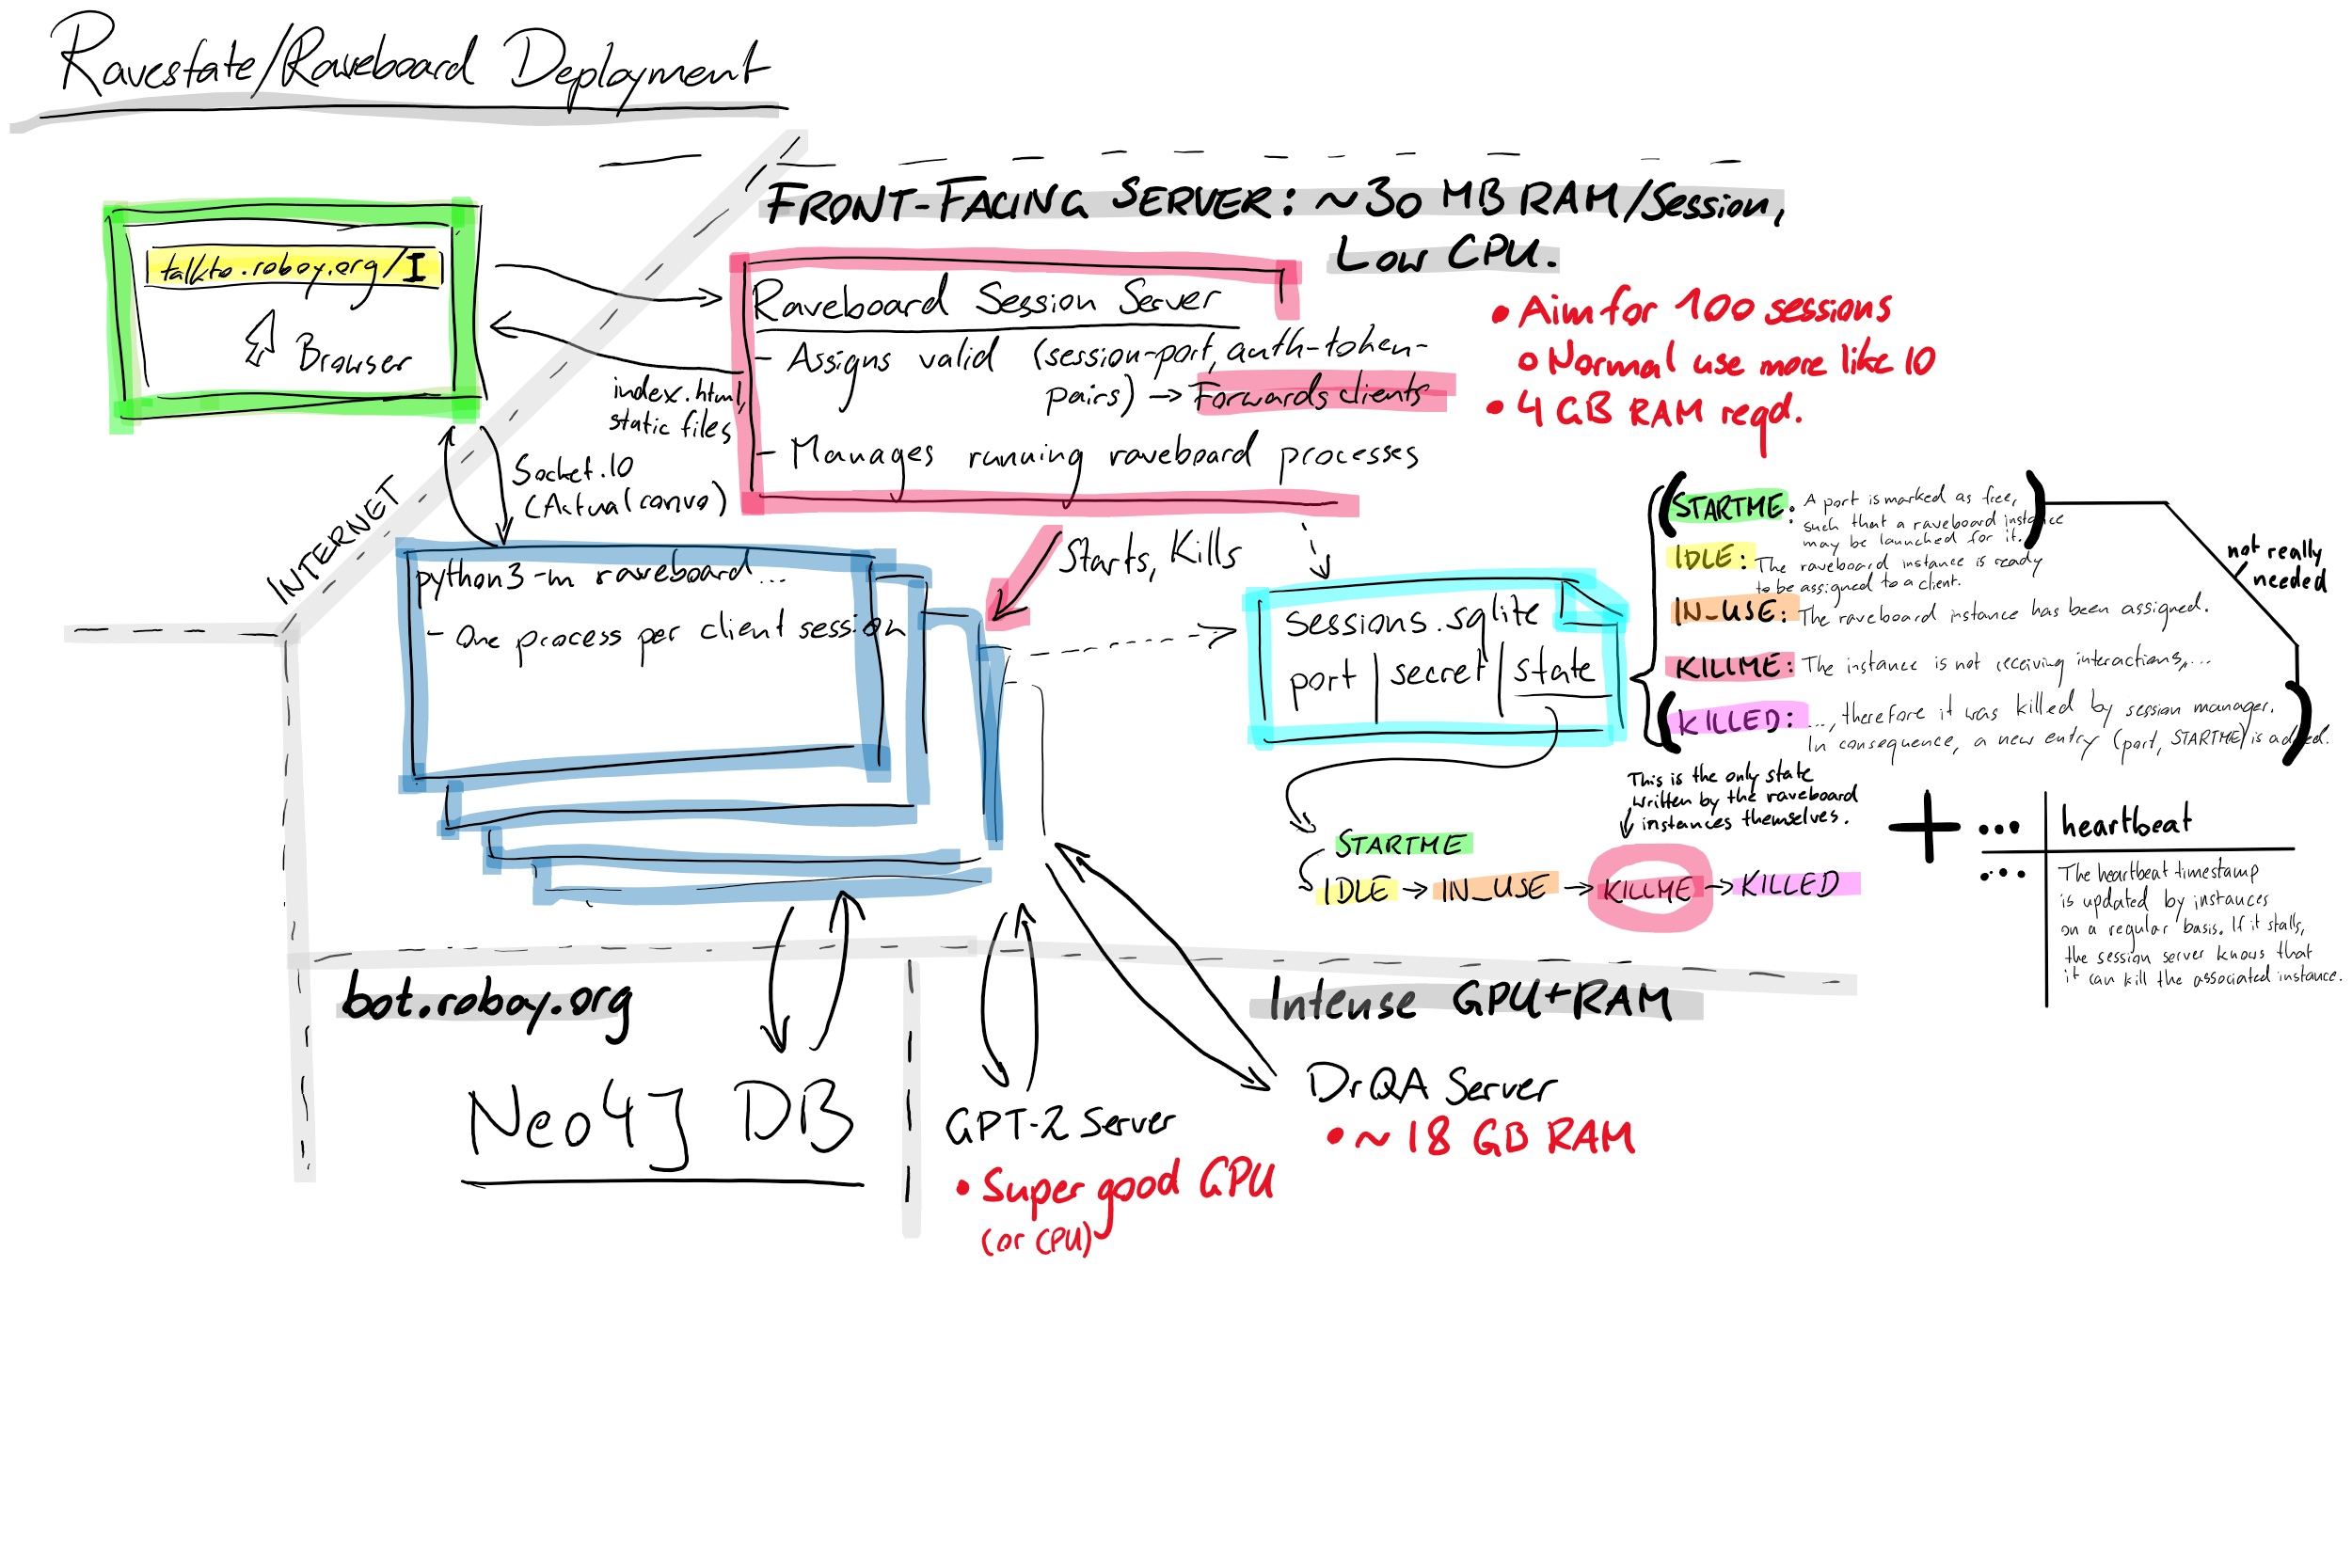 Ravestate/Raveboard Deployment
FRONT-FACING SERVER: ~30 MB RAM/Session,
Low CPU.
talkto.roboy.org/I
Browser
Raveboard Session Server
- Assigns valid (session-port, auth-token-
pairs) → Forwards clients
- Manages running raveboard processes
index.html,
static files
• Aim for 100 sessions
o Normal use more like 10
• 4 GB RAM reqd.
Socket.IO
(Actual convo)
INTERNET
Starts, Kills
python3 -m raveboard...
- One process per client session
sessions.sqlite
port | secret | state
STARTME: A port is marked as free,
such that a raveboard instance
may be launched for it.
IDLE: The raveboard instance is ready
to be assigned to a client.
IN_USE: The raveboard instance has been assigned.
KILLME: The instance is not receiving interactions,...
KILLED: ..., therefore it was killed by session manager.
In consequence, a new entry (port, STARTME) is added.
not really
needed
This is the only state
written by the raveboard
instances themselves.
STARTME
IDLE → IN_USE → KILLME → KILLED
+ ... | heartbeat
... | The heartbeat timestamp
is updated by instances
on a regular basis. If it stalls,
the session server knows that
it can kill the associated instance.
bot.roboy.org
Neo4J DB
Intense GPU+RAM
GPT-2 Server
• Super good GPU
(or CPU)
DrQA Server
• ~18 GB RAM